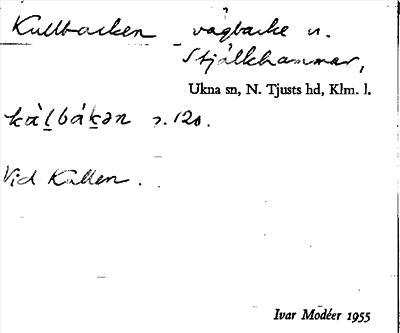 Kullbacken vägbacke n.
Stjälkhammar,
Ukna sn, N. Tjusts hd, Klm. l.
kàl̠bák̠ən s. 120.
Vid Kullen.
Ivar Modéer 1955